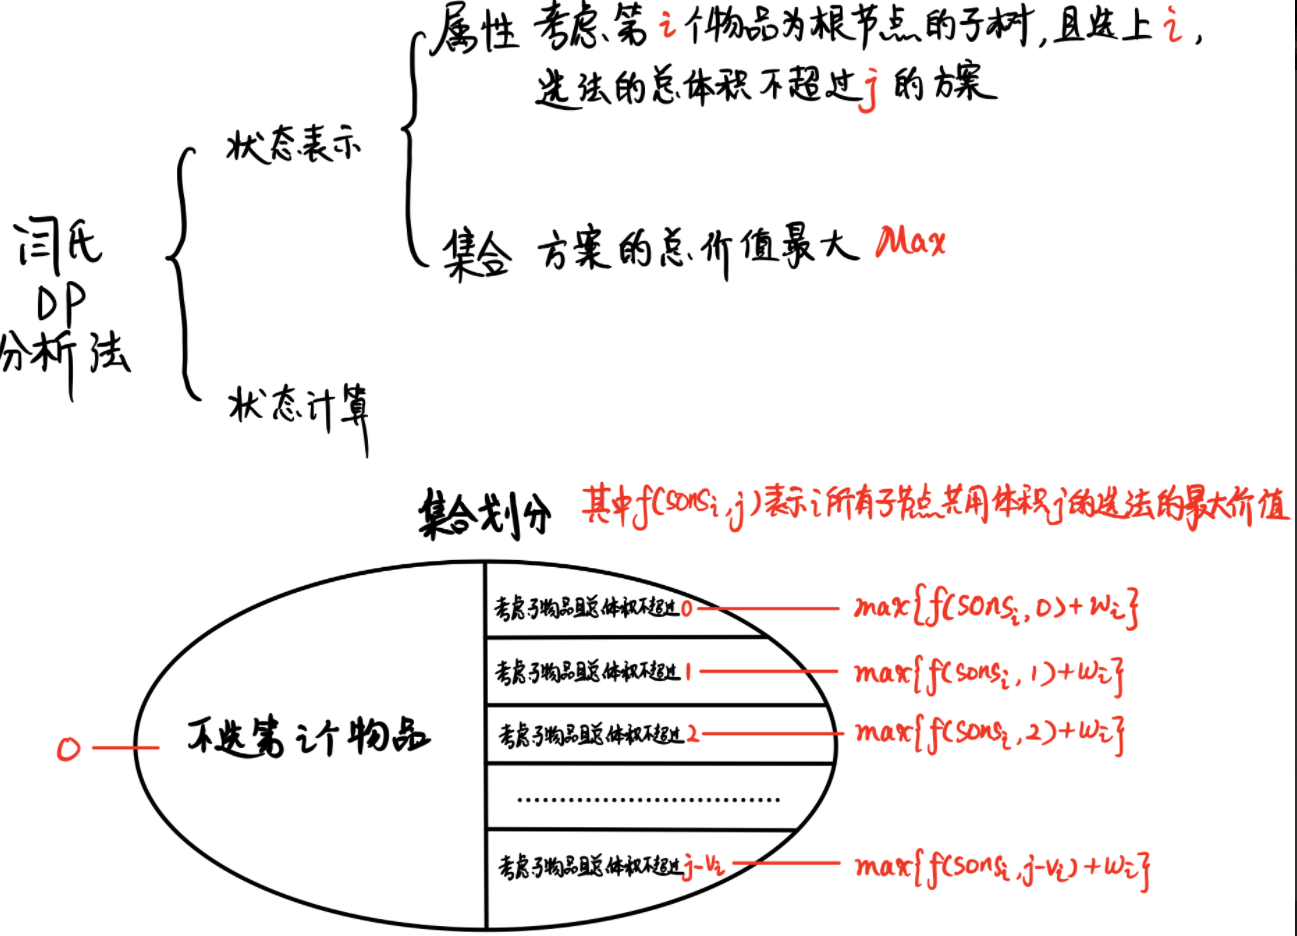 属性 考虑第i个物品为根节点的子树,且选上i,
选法的总体积不超过j的方案
状态表示
闫氏
DP
分析法
集合 方案的总价值最大 Max
状态计算
集合划分 其中f(sonsi,j)表示i所有子节点共用体积j的选法的最大价值
考虑子物品且总体积不超过0 max{f(sonsi,0)+wi}
考虑子物品且总体积不超过1 max{f(sonsi,1)+wi}
考虑子物品且总体积不超过2 max{f(sonsi,2)+wi}
0 不选第i个物品
..............................
考虑子物品且总体积不超过j-vi max{f(sonsi,j-vi)+wi}